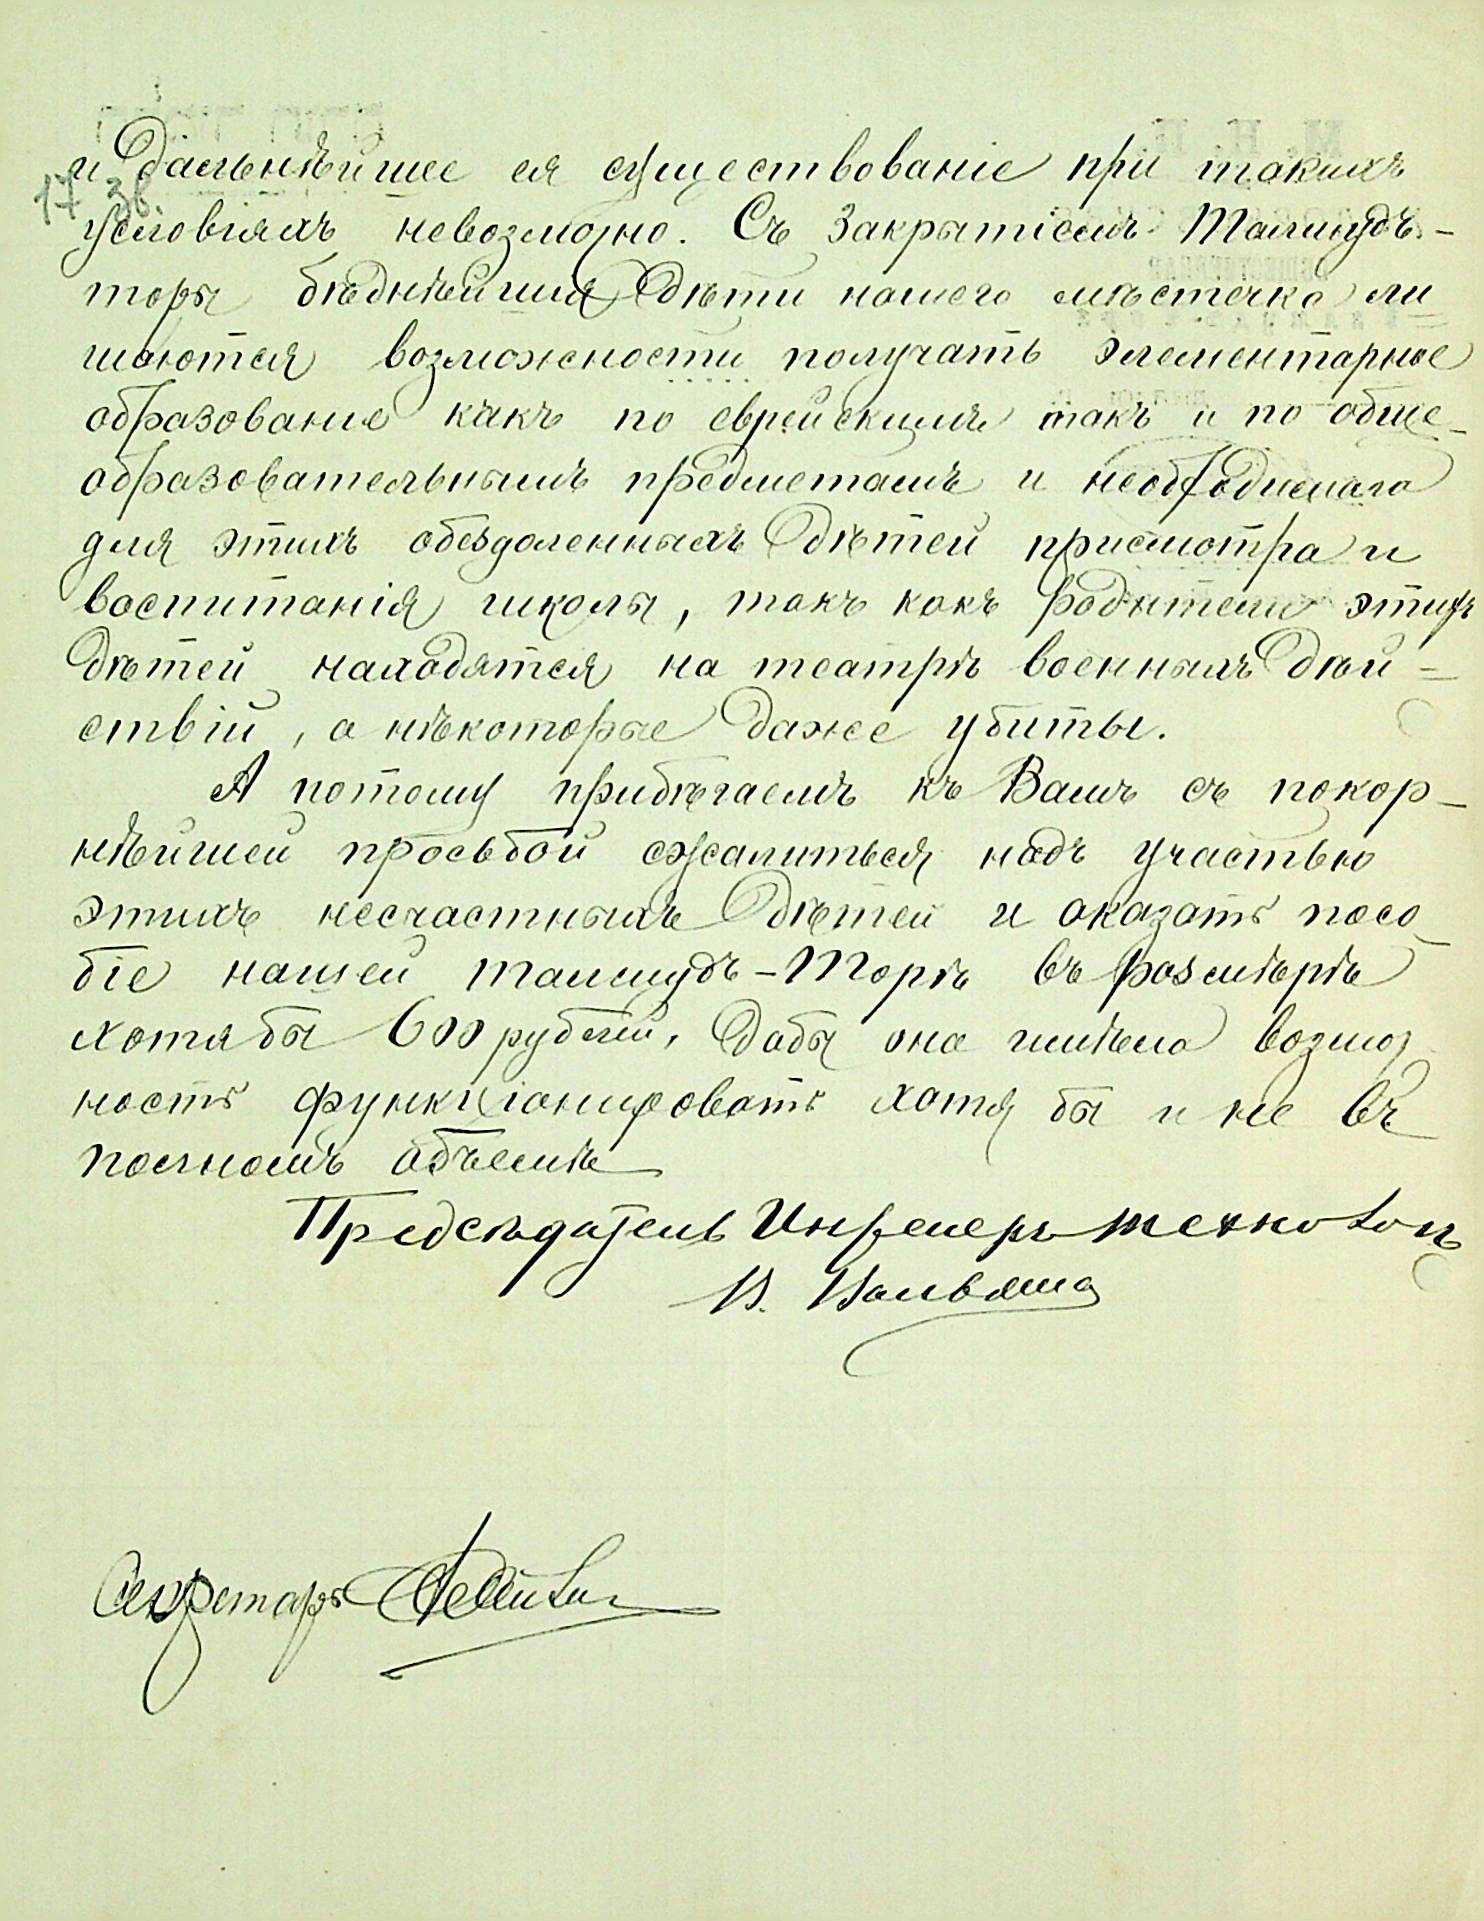 и дальнѣйшее ея существованіе при такихъ
17 зв.
условіяхъ невозможно. Съ закрытіемъ Талмудъ-
торы бѣднѣйшія дѣти нашего мѣстечка ли
шаются возможности получать элементарное
образованіе какъ по еврейскимъ такъ и по обще-
образовательнымъ предметамъ и необходимаго
для этихъ обездоленныхъ дѣтей присмотра и
воспитанія школы, такъ какъ родители этихъ
дѣтей находятся на театрѣ военныхъ дѣй=
ствій, а нѣкоторые даже убиты.
А потому прибѣгаемъ къ Вамъ съ покор-
нѣйшей просьбой сжалиться надъ участью
этихъ несчастныхъ дѣтей и оказать посо
біе нашей талмудъ-Торѣ въ размѣрѣ
хотя бы 600 рублей, дабы она имѣла возмож
ность функціонировать хотя бы и не въ
полномъ объемѣ
Предсѣдатель Инженеръ технологъ
В.
Секретарь